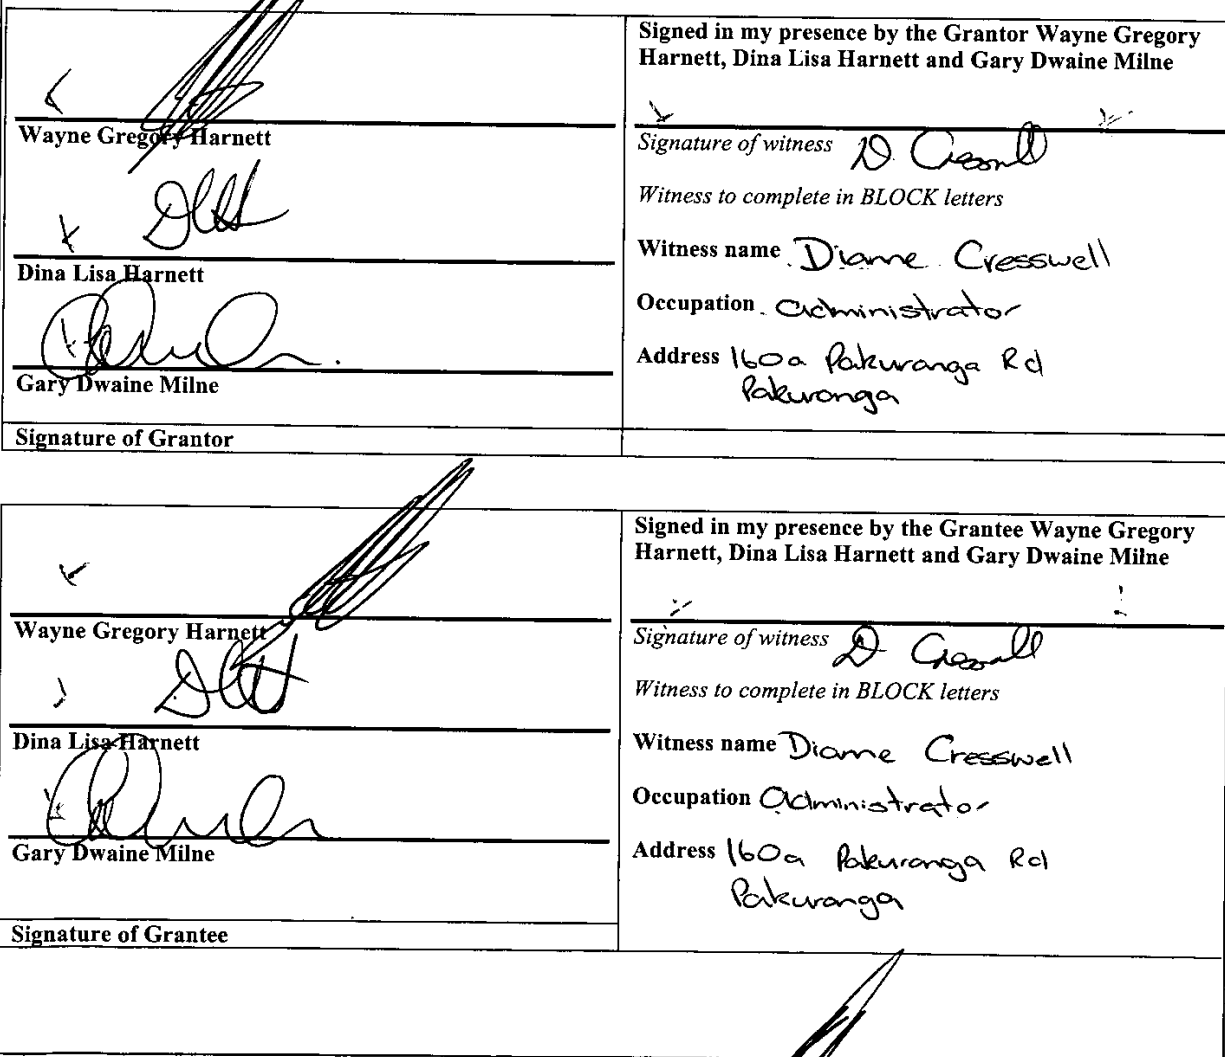 Wayne Gregory Harnett
Dina Lisa Harnett
Gary Dwaine Milne
Signature of Grantor
Signed in my presence by the Grantor Wayne Gregory
Harnett, Dina Lisa Harnett and Gary Dwaine Milne
Signature of witness D Cresswell
Witness to complete in BLOCK letters
Witness name Diane Cresswell
Occupation administrator
Address 160a Pakuranga Rd
Pakuranga
Wayne Gregory Harnett
Dina Lisa Harnett
Gary Dwaine Milne
Signature of Grantee
Signed in my presence by the Grantee Wayne Gregory
Harnett, Dina Lisa Harnett and Gary Dwaine Milne
Signature of witness D Cresswell
Witness to complete in BLOCK letters
Witness name Diane Cresswell
Occupation administrator
Address 160a Pakuranga Rd
Pakuranga